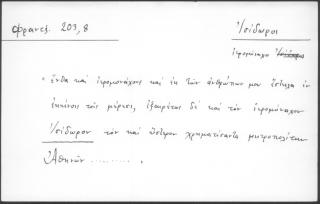 Φραντζ. 203,8
Ἰσίδωρος
ἱερομόναχο
"ἔνθα καὶ ἱερομονάχους καὶ ἐκ τῶν ἀνθρώπων μου ἔστησα ἐν
ἐκείνοις τοῖς μέρεσι, ἐξαιρέτως δὲ καὶ τὸν ἱερομόναχον
Ἰσίδωρον τὸν καὶ ὕστερον χρηματίσαντα μητροπολίτην
Ἀθηνῶν ..........